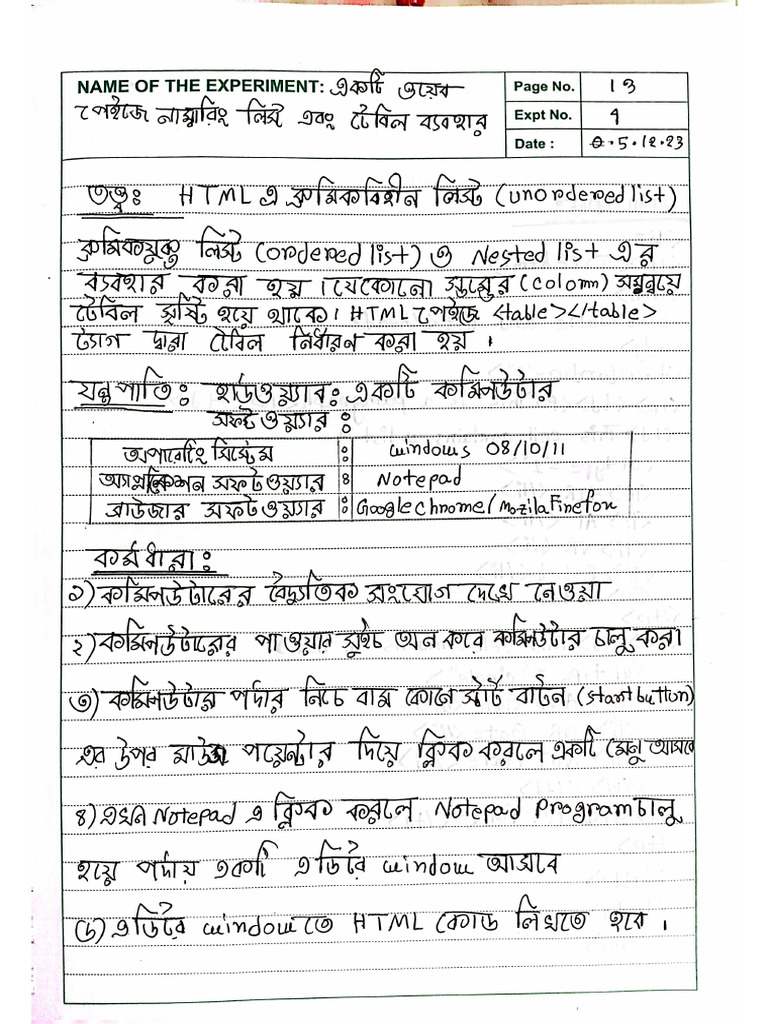 NAME OF THE EXPERIMENT: একটি ওয়েব
পেইজে নাম্বারিং লিস্ট এবং টেবিল ব্যবহার
Page No. 13
Expt No. 4
Date : 05.12.23
তত্ত্ব: HTML এ ক্রমিকবিহীন লিস্ট (unordered list)
ক্রমিকযুক্ত লিস্ট (ordered list) ও Nested list এর
ব্যবহার করা হয়। যেকোনো স্তম্ভের (colomn) সমন্বয়ে
টেবিল সৃষ্টি হয়ে থাকে। HTML পেইজে <table></table>
ট্যাগ দ্বারা টেবিল নির্ধারন করা হয়।
যন্ত্রপাতি: হার্ডওয়্যার: একটি কম্পিউটার
সফটওয়্যার:
অপারেটিং সিস্টেম : windows 08/10/11
অ্যাপ্লিকেশন সফটওয়্যার : Notepad
ব্রাউজার সফটওয়্যার : Google chrome/Mozila Firefox
কার্যধারা:
১) কম্পিউটারের বৈদ্যুতিক সংযোগ দেখে নেওয়া
২) কম্পিউটারের পাওয়ার সুইচ অন করে কম্পিউটার চালু করা
৩) কম্পিউটার পর্দার নিচে বাম কোনে স্টার্ট বাটন (start button)
এর উপর মাউস পয়েন্টার দিয়ে ক্লিক করলে একটি মেনু আসবে
৪) এখন Notepad এ ক্লিক করলে Notepad Program চালু
হয়ে পর্দায় একটি এডিটর window আসবে
৫) এডিটর window তে HTML কোড লিখতে হবে।